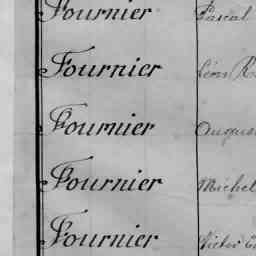 Fournier Pascal
Fournier Léon
Fournier
Fournier Michel
Fournier Victor